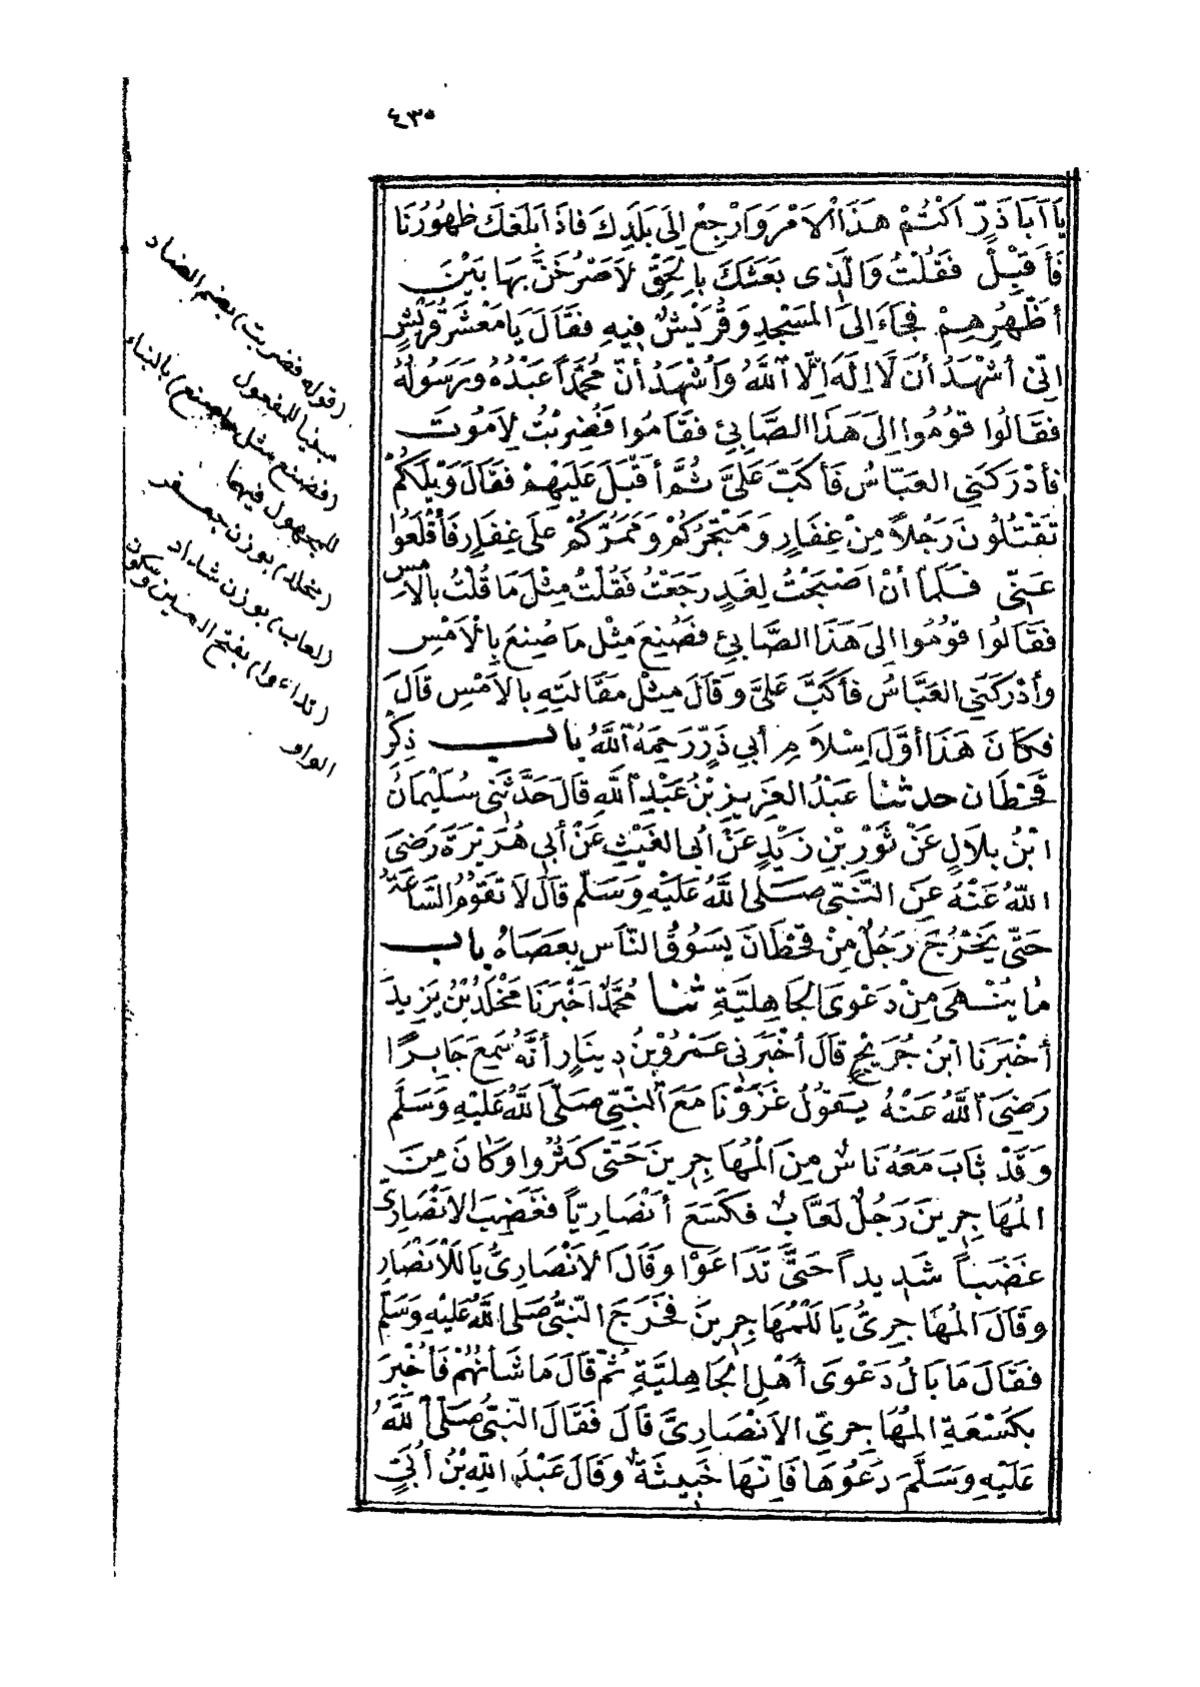 ٤٣٥
يَا أَبَا ذَرٍّ اكْتُمْ هَذَا الْأَمْرَ وَارْجِعْ إِلَى بَلَدِكَ فَاذَا بَلَغَكَ ظُهُورُنَا
فَأَقْبِلْ فَقُلْتُ وَالَّذِى بَعَثَكَ بِالْحَقِّ لَأَصْرُخَنَّ بِهَا بَيْنَ
أَظْهُرِهِمْ فَجَاءَ إِلَى الْمَسْجِدِ وَقُرَيْشٌ فِيهِ فَقَالَ يَا مَعْشَرَ قُرَيْشٍ
اِنِّى أَشْهَدُ أَنْ لَا اِلَهَ اِلَّا اللّٰهُ وَأَشْهَدُ أَنَّ مُحَمَّدًا عَبْدُهُ وَرَسُولُهُ
فَقَالُوا قُومُوا اِلَى هَذَا الصَّابِئِ فَقَامُوا فَضُرِبْتُ لِأَمُوتَ
فَأَدْرَكَنِى العَبَّاسُ فَأَكَبَّ عَلَىَّ ثُمَّ أَقْبَلَ عَلَيْهِمْ فَقَالَ وَيْلَكُمْ
تَقْتُلُونَ رَجُلاً مِنْ غِفَارٍ وَمَتْجَرُكُمْ وَمَمَرُّكُمْ عَلَى غِفَارٍ فَأَقْلَعُوا
عَنِّى فَلَمَّا أَنْ أَصْبَحْتُ لِغَدٍ رَجَعْتُ فَقُلْتُ مِثْلَ مَا قُلْتُ بِالأَمْسِ
فَقَالُوا قُومُوا اِلَى هَذَا الصَّابِئِ فَصُنِعَ مِثْل مَا صُنِعَ بِالْأَمْسِ
وَأَدْرَكَنِى العَبَّاسُ فَأَكَبَّ عَلَىَّ وَقَالَ مِثْل مَقَالَتِهِ بِالْأَمْسِ قَالَ
فَكَانَ هَذَا أَوَّلَ اِسْلَامِ أَبِى ذَرٍّ رَحِمَهُ اللّٰهُ باب ذِكْرِ
قَحْطَان حدثنا عَبْدُ العَزِيزِ بْنُ عَبْدِ اللّٰهِ قَالَ حَدَّثَنِى سُلَيْمَانُ
ابْنُ بِلَالٍ عَنْ ثَوْرِ بْنِ زَيْدٍ عَنْ أَبِى الغَيْثِ عَنْ أَبِى هُرَيْرَةَ رَضِىَ
اللّٰهُ عَنْهُ عَنِ النَّبِىِّ صَلَّى اللّٰهُ عَلَيْهِ وَسَلَّمَ قَالَ لَا تَقُومُ السَّاعَةُ
حَتَّى يَخْرُجَ رَجُلٌ مِنْ قَحْطَانَ يَسُوقُ النَّاسَ بِعَصَاهُ باب
مَا يُنْهَى مِنْ دَعْوَى الْجَاهِلِيَّةِ ثنا مُحَمَّدٌ اَخْبَرَنَا مَخْلَدُ بْنُ يَزِيدَ
أَخْبَرَنَا ابْنُ جُرَيْجٍ قَالَ أَخْبَرَنِى عَمْرُو بْنُ دِينَارٍ أَنَّهُ سَمِعَ جَابِرًا
رَضِىَ اللّٰهُ عَنْهُ يَقُولُ غَزَوْنَا مَعَ النَّبِىِّ صَلَّى اللّٰهُ عَلَيْهِ وَسَلَّمَ
وَقَدْ ثَابَ مَعَهُ نَاسٌ مِنَ الْمُهَاجِرِينَ حَتَّى كَثُرُوا وَكَانَ مِنَ
الْمُهَاجِرِينَ رَجُلٌ لَعَّابٌ فَكَسَعَ أَنْصَارِيّاً فَغَضِبَ الْأَنْصَارِىُّ
غَضَبًا شَدِيداً حَتَّى تَدَاعَوْا وَقَالَ الْأَنْصَارِىُّ يَا لَلْأَنْصَارِ
وَقَالَ الْمُهَاجِرِىُّ يَا لَلْمُهَاجِرِينَ فَخَرَجَ النَّبِىُّ صَلَّى اللّٰهُ عَلَيْهِ وَسَلَّمَ
فَقَالَ مَا بَالُ دَعْوَى أَهْلِ الْجَاهِلِيَّةِ ثُمَّ قَالَ مَا شَأْنُهُمْ فَأُخْبِرَ
بِكَسْعَةِ الْمُهَاجِرِىِّ الْأَنْصَارِىَّ قَالَ فَقَالَ النَّبِىُّ صَلَّى اللّٰهُ
عَلَيْهِ وَسَلَّمَ دَعُوهَا فَاِنَّهَا خَبِيثَةٌ وَقَالَ عَبْدُ اللّٰهِ بْنُ أُبَىٍّ
(قوله فضربت) بضم الضاد
مبنيا للمفعول
(فصنع مثل ما صنع) بالبناء
للمجهول فيهما
(مخلد) بوزن جعفر
(لعاب) بوزن شداد
(تداعوا) بفتح العين وسكون
الواو